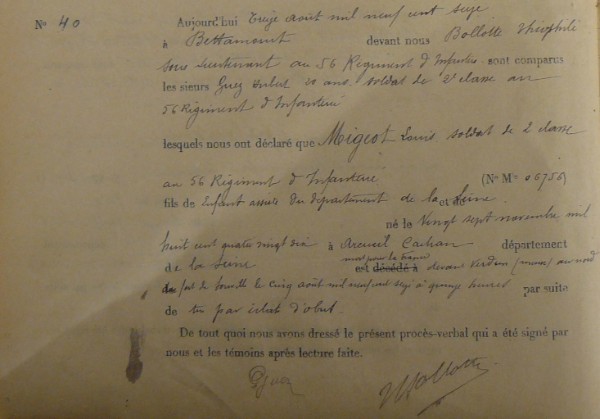 No 40
Aujourd'hui Treize août mil neuf cent seize
à Bettancourt devant nous Bollotte Théophile
sous lieutenant au 56 Régiment d'Infanterie sont comparus
les sieurs Guez 20 ans soldat de 2e classe au
56 Régiment d'Infanterie
lesquels nous ont déclaré que Migeot Louis soldat de 2 classe
au 56 Régiment d'Infanterie (No Mle 06756)
fils de Enfant assisté du département de la et de Seine
né le Vingt sept novembre mil
huit cent quatre vingt dix à Arcueil Cachan département
de la Seine est décédé à mort pour la France devant Verdun (Meuse) au nord
du fort de Souville le cinq août mil neuf cent seize à quinze heures par suite
de tué par éclat d'obus.
De tout quoi nous avons dressé le présent procès-verbal qui a été signé par
nous et les témoins après lecture faite.
Guez Bollotte